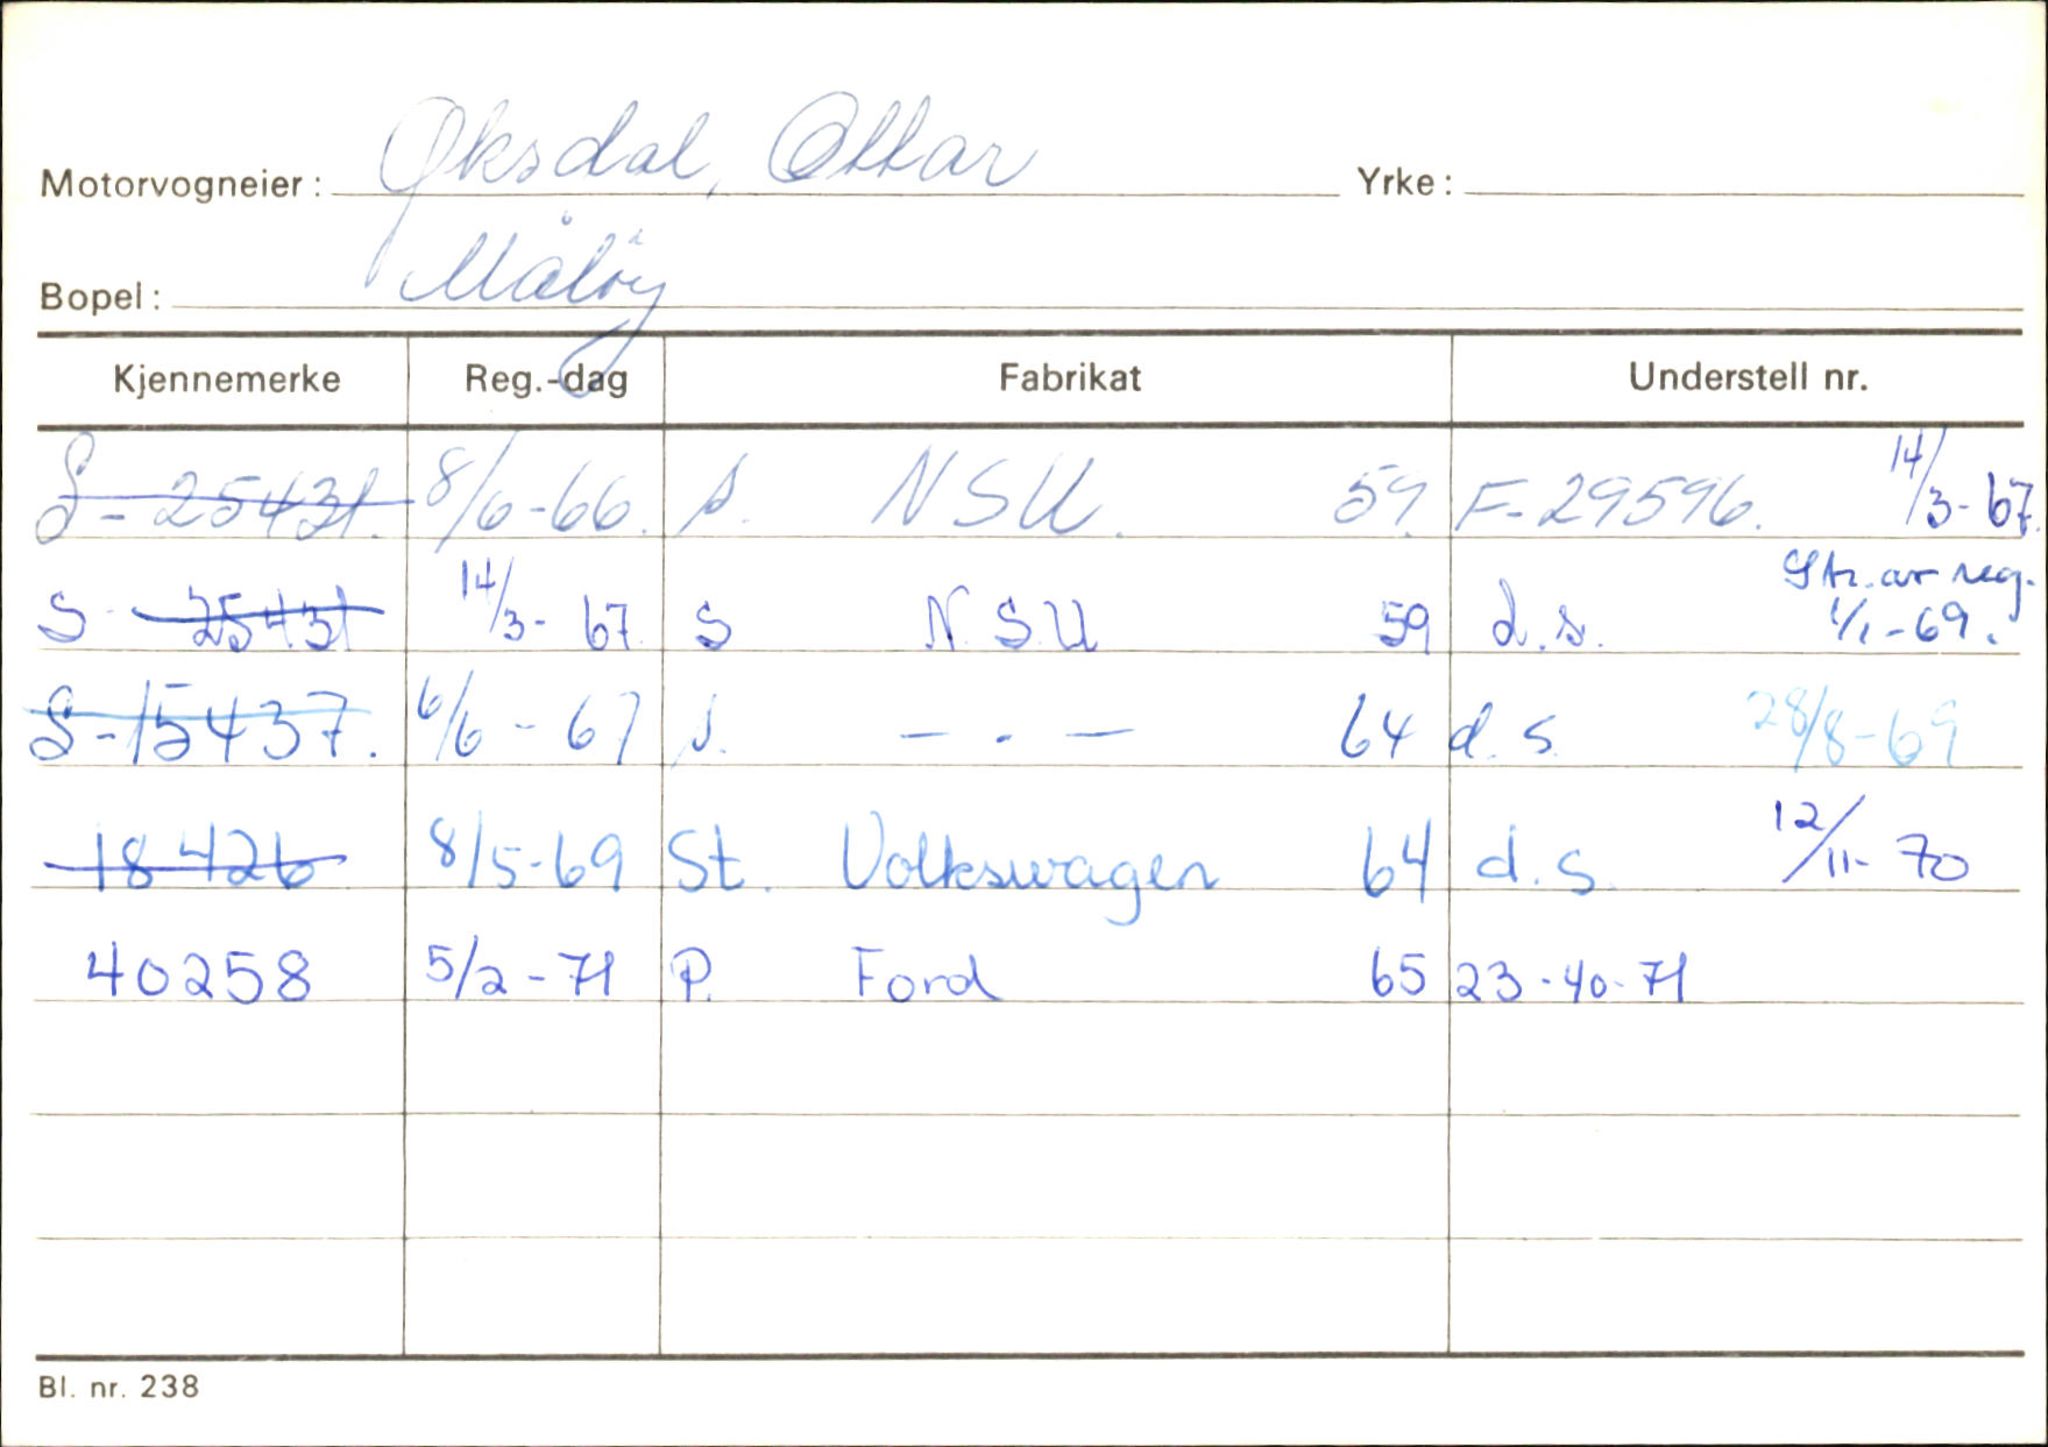 Motorvogneier: Øksdal, Ottar Yrke:
Bopel: Måløy
Kjennemerke Reg.-dag Fabrikat Understell nr.
S-25431. 8/6-66. s. NSU. 59. F-29596. 14/3-67.
S 25431 14/3-67 S N.S.U 59 d.s. Str. av reg. 1/1-69.
S-15437. 6/6-67 s. —.— 64 d.s. 28/8-69
18426 8/5-69 St. Volkswagen 64 d.s. 12/11-70
40258 5/2-71 P. Ford 65 23-40-71
Bl. nr. 238